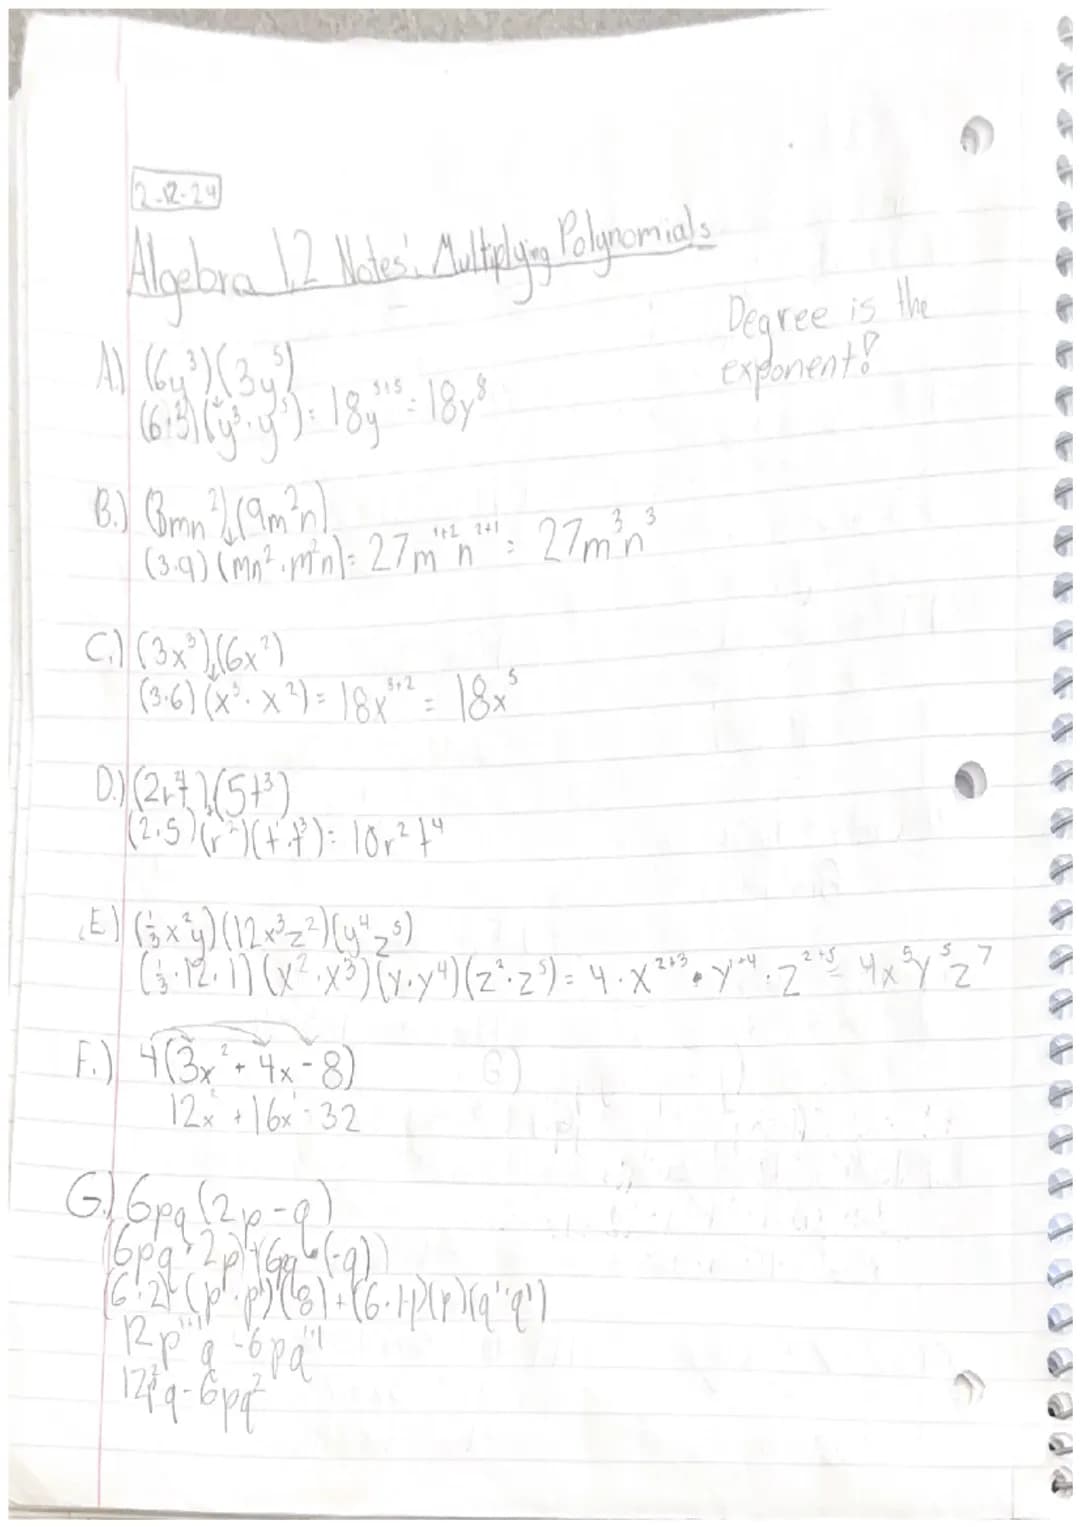 2-12-24
Algebra 1.2 Notes: Multiplying Polynomials
Degree is the
exponent!
A.) (6y³)(3y⁵)
(6·3)(y³·y⁵) = 18y³⁺⁵ = 18y⁸
B.) (3mn²)(9m²n)
(3·9)(mn²·m²n) = 27m¹⁺²n²⁺¹ = 27m³n³
C.) (3x³)(6x²)
(3·6)(x³·x²) = 18x³⁺² = 18x⁵
D.) (5t³)
(2·5)(r²)(t¹·t³) = 10r²t⁴
E.) (⅓x²y)(12x³z²)(y⁴z⁵)
(⅓·12·1)(x²·x³)(y·y⁴)(z²·z⁵) = 4·x²⁺³·y¹⁺⁴·z²⁺⁵ = 4x⁵y⁵z⁷
F.) 4(3x²+4x-8)
12x²+16x-32
G.) 6pq(2p-q)
(6pq·2p)+(6pq·(-q))
(6·2)(p¹·p¹)(8)+(6·1·p)(p)(q¹·q¹)
12p¹⁺¹q-6pq¹⁺¹
12p²q-6pq²